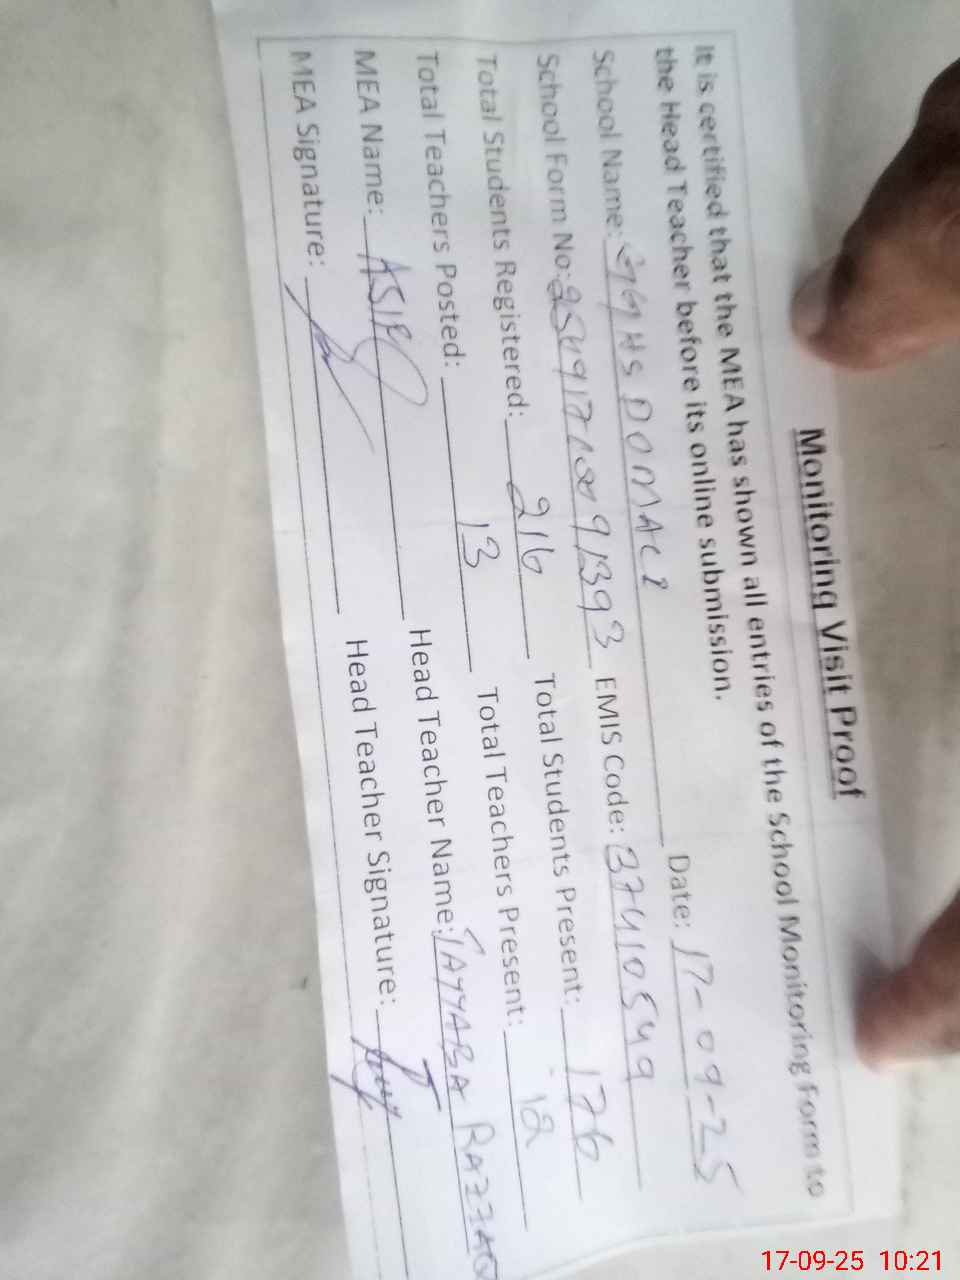 Monitoring Visit Proof
It is certified that the MEA has shown all entries of the School Monitoring Form to
the Head Teacher before its online submission.
School Name: GGHS DOMALI Date: 17-09-25
School Form No: EMIS Code: 37410549
Total Students Registered: 216 Total Students Present: 176
Total Teachers Posted: 13 Total Teachers Present: 12
MEA Name: ASIF Head Teacher Name: TAYYABA RAZZAQ
MEA Signature: Head Teacher Signature:
17-09-25 10:21